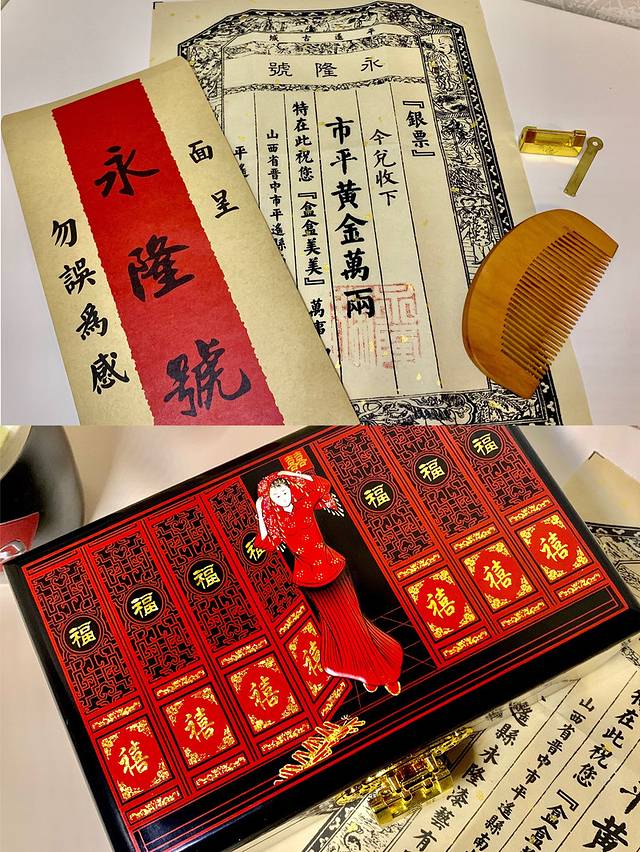 平遙古城
永隆號
『銀票』
今兌收下
市平黃金萬兩
特在此祝您『盒盒美美』萬事
山西省晉中市平遙縣
平遙
面呈
永隆號
勿誤爲感
囍
福
福
福
福
福
福
福
禧
禧
禧
禧
禧
禧
禧
平黃
特在此祝您『盒盒
山西省晉中市平遙縣南
遙縣永隆漆藝有